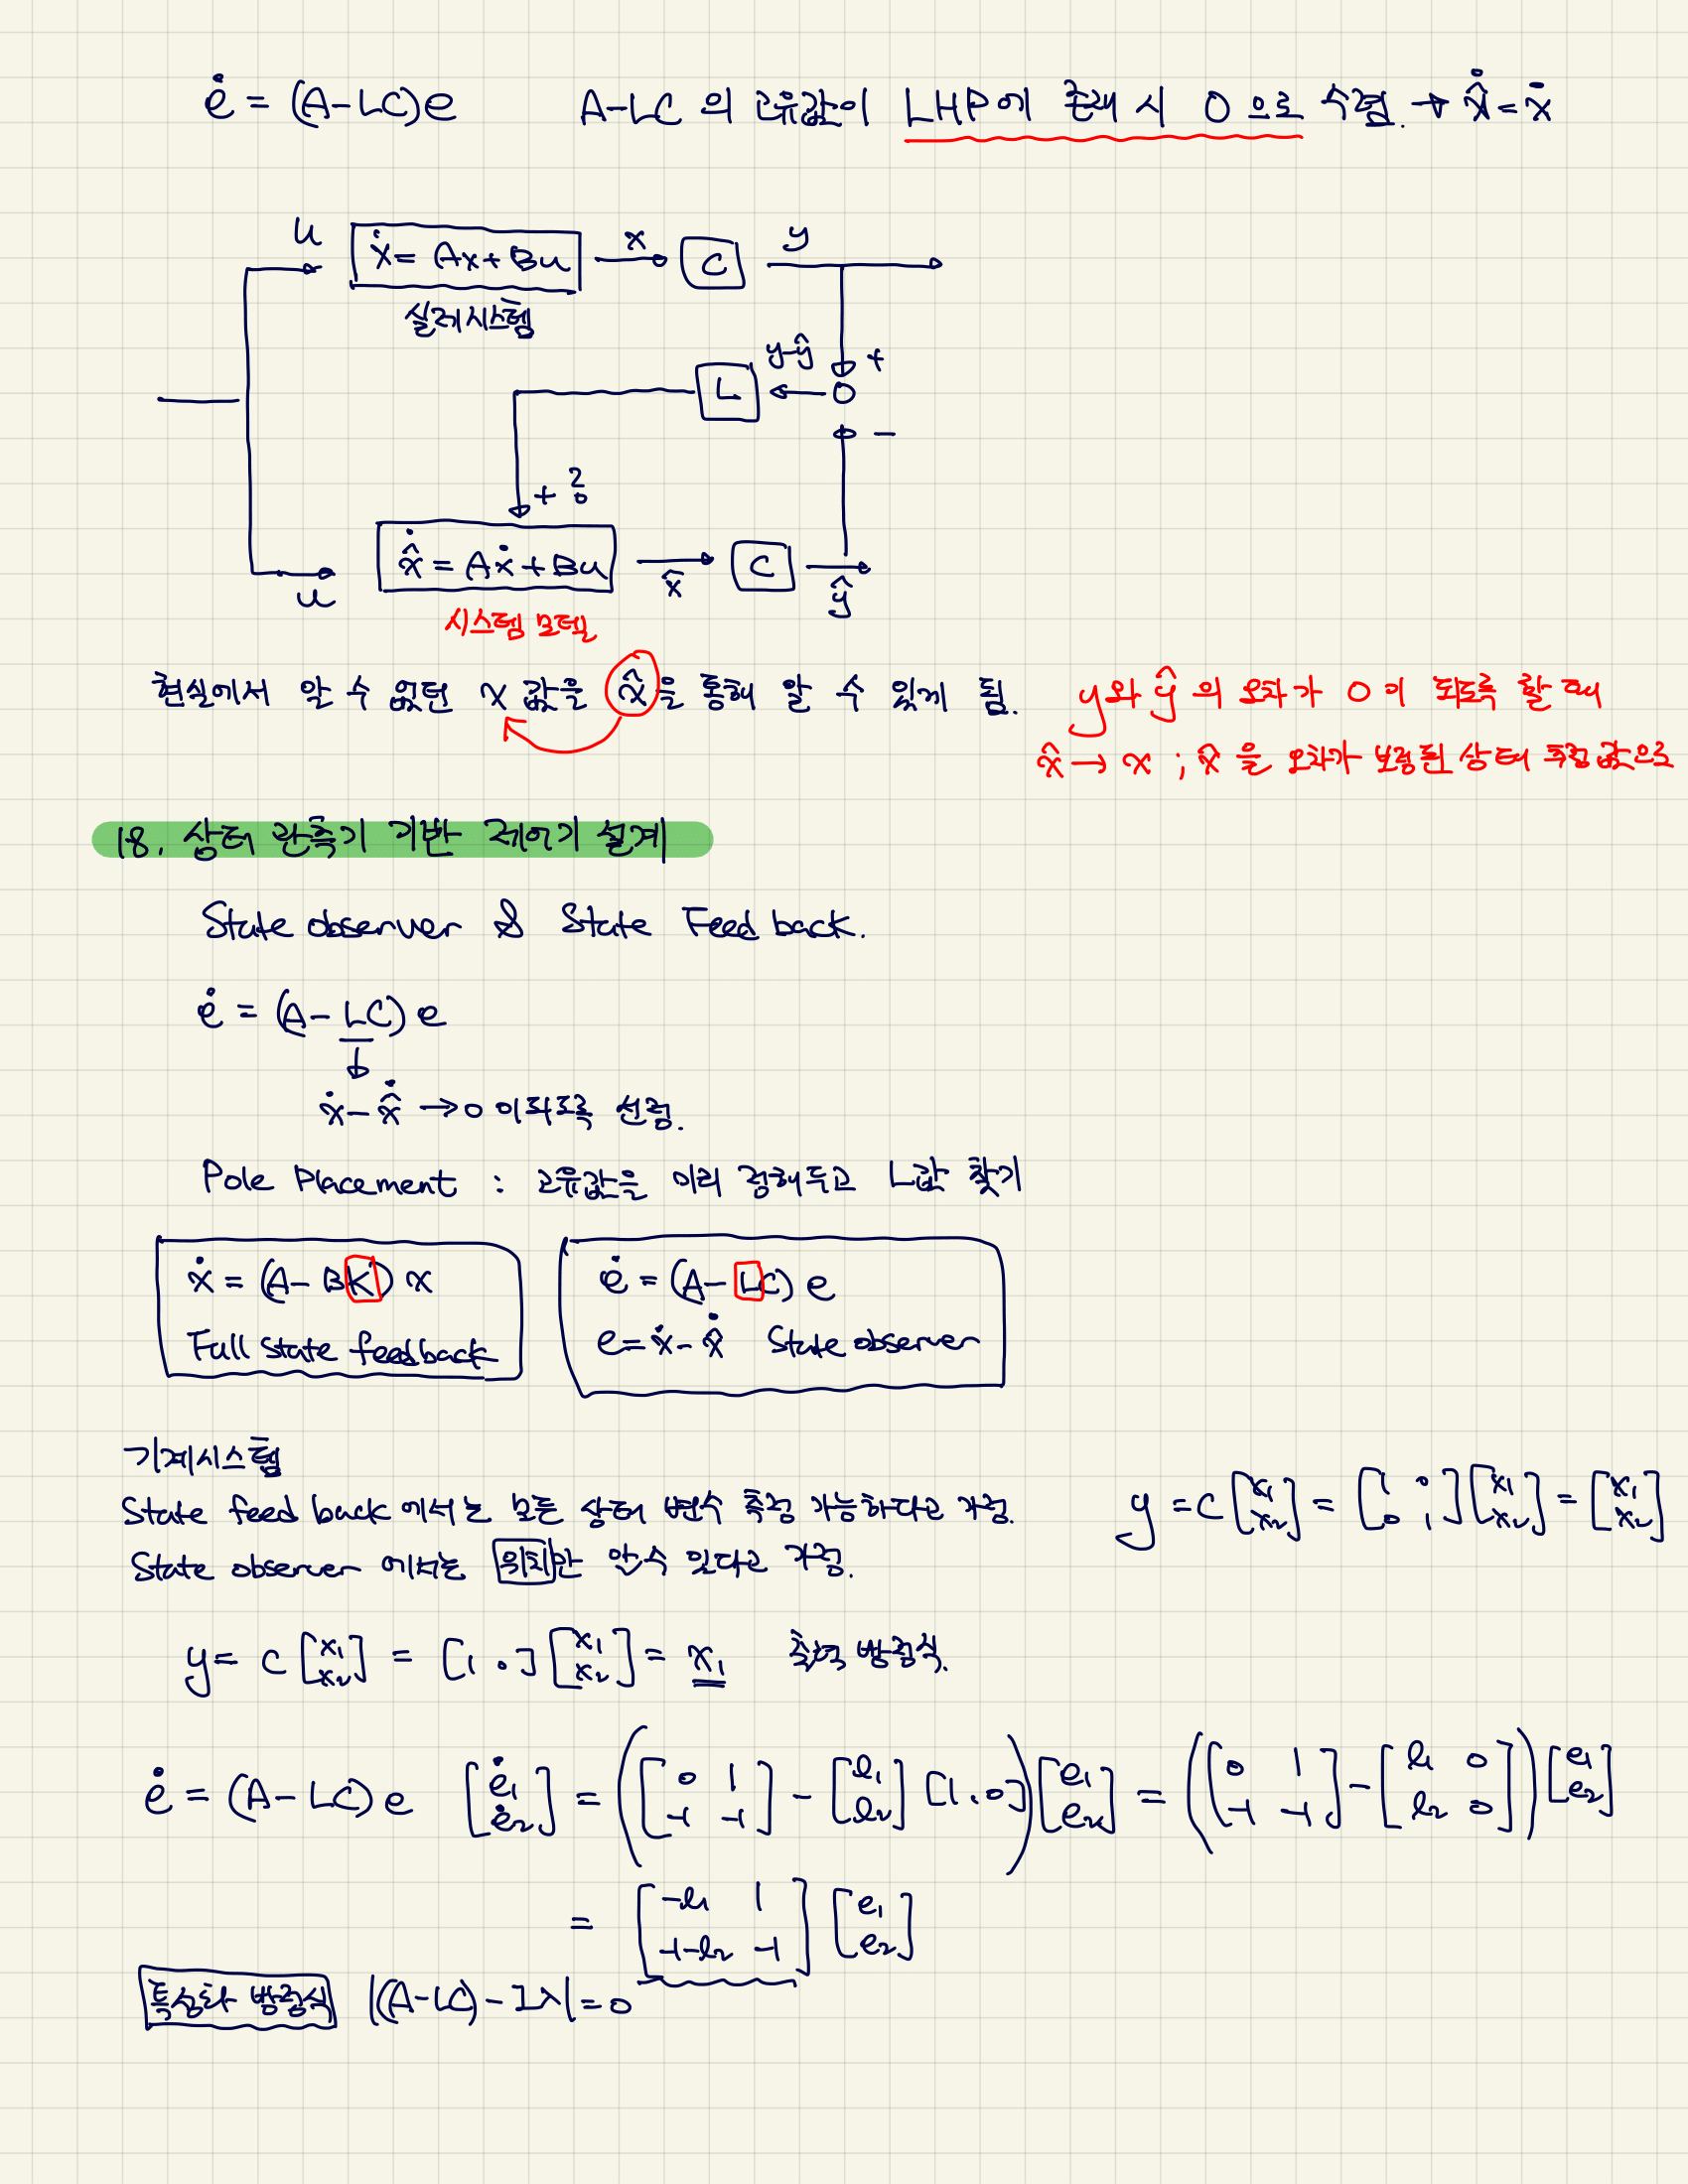 ė = (A-LC)e A-LC 의 고유값이 LHP에 존재 시 0 으로 수렴. → x̂̇ = ẋ
u ẋ = Ax + Bu x C y
실제시스템
y-ŷ +
L
-
+ ?
x̂̇ = Aẋ + Bu x̂ C ŷ
u
시스템 모델
현실에서 알 수 없던 x 값을 x̂ 을 통해 알 수 있게 됨. y와 ŷ 의 오차가 0 이 되도록 할 때
x̂ → x ; x̂ 을 오차가 보정된 상태 추정 값으로
18. 상태 관측기 기반 제어기 설계
State observer & State Feed back.
ė = (A-LC) e
ẋ - x̂̇ → 0 이되도록 선정.
Pole Placement : 고유값을 미리 정해두고 L값 찾기
ẋ = (A-BK) x ė = (A-LC) e
Full state feedback e = ẋ - x̂̇ State observer
기계시스템
State feed back 에서는 모든 상태 변수 측정 가능하다고 가정. y = C [x₁ x₂] = [1 0 0 1] [x₁ x₂] = [x₁ x₂]
State observer 에서는 위치만 알 수 있다고 가정.
y = C [x₁ x₂] = [1 0] [x₁ x₂] = x₁ 출력 방정식.
ė = (A-LC) e [ė₁ ė₂] = ([0 1 -1 -1] - [l₁ l₂] [1. 0]) [e₁ e₂] = ([0 1 -1 -1] - [l₁ 0 l₂ 0]) [e₁ e₂]
= [-l₁ 1 -1-l₂ -1] [e₁ e₂]
특성화 방정식 |(A-LC) - Iλ| = 0